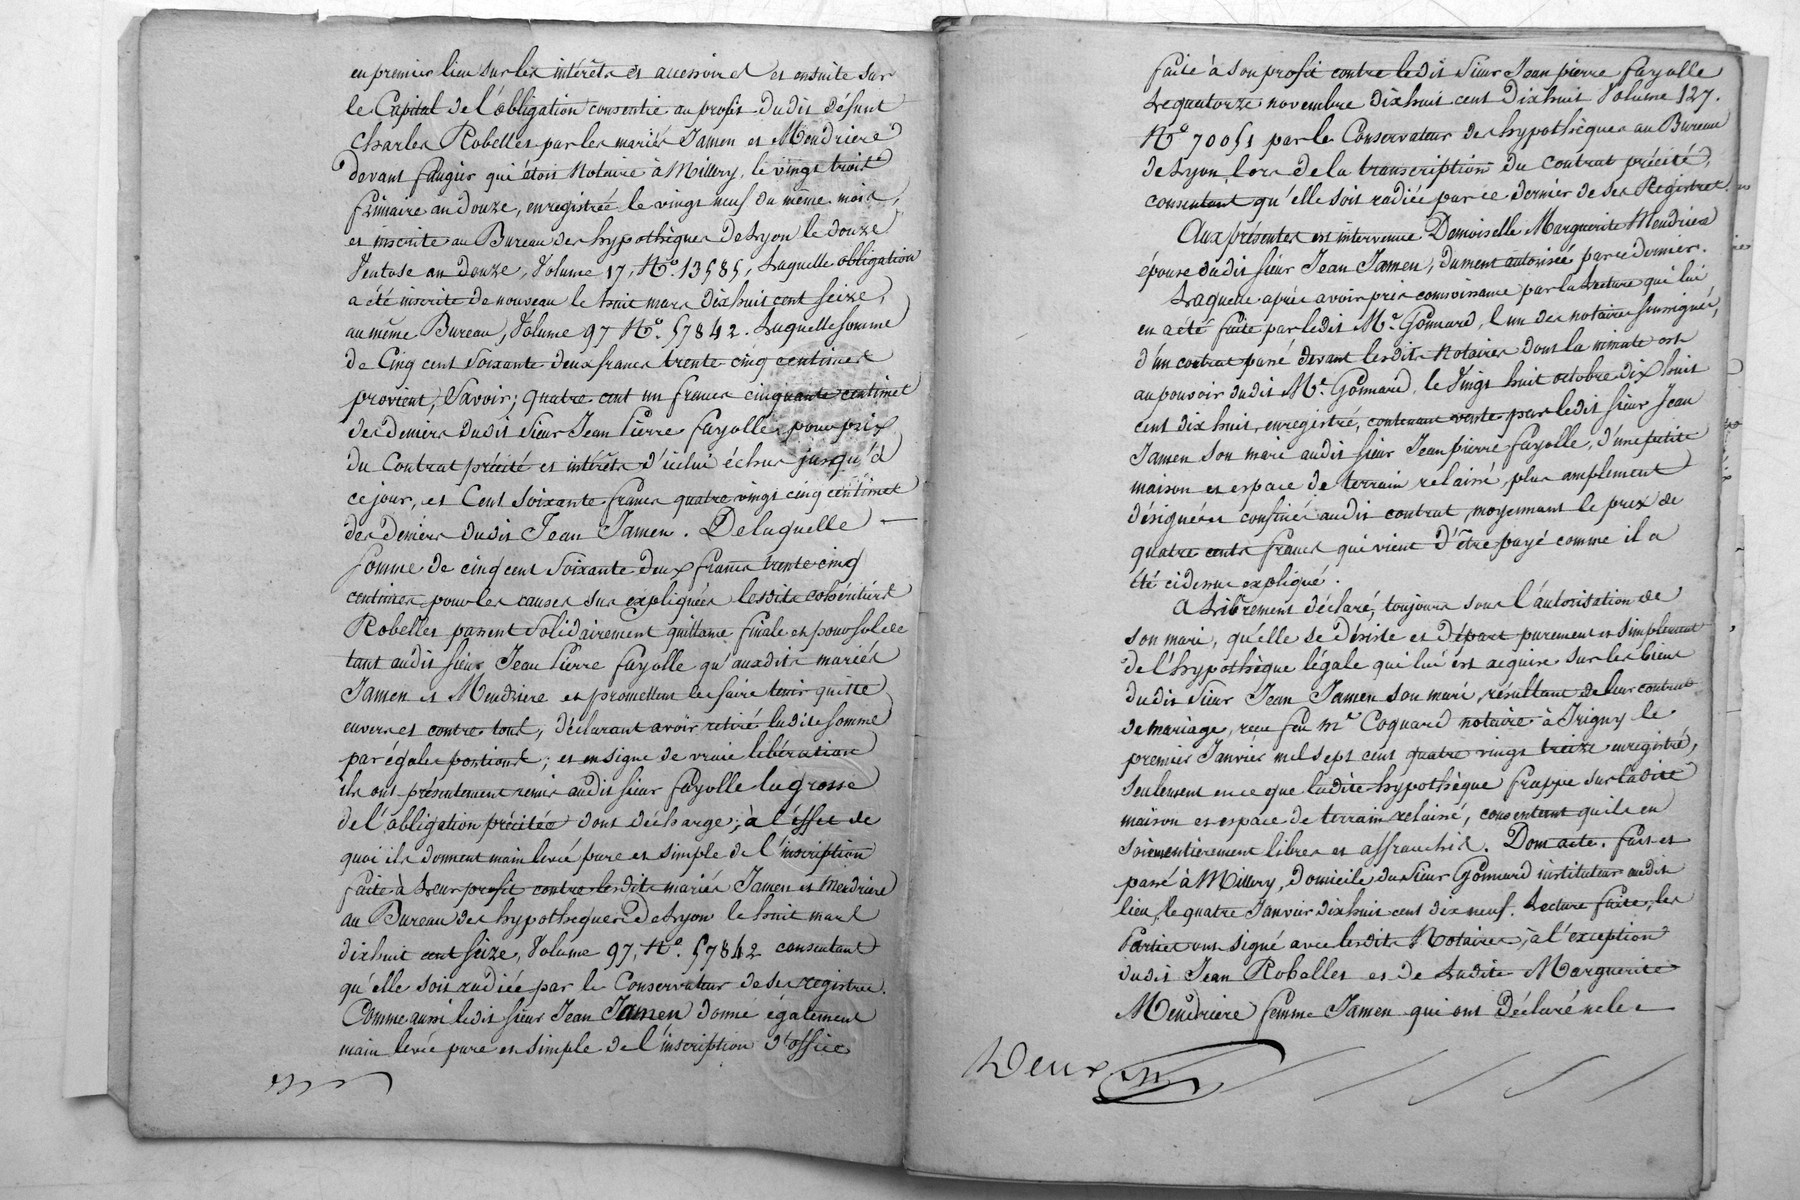 en premier lieu sur les intérêts et accessoires et ensuite sur
le Capital de l'obligation consentie au profit dudit défunt
Charles Robelles par les mariés Jamen et Meudriere
devant Faugier qui étoit Notaire à Millery, le vingt trois
frimaire an douze, enregistrée le vingt neuf du même mois,
et inscrite au Bureau des hypothèques de Lyon le douze
Ventose an douze, Volume 17, N.° 13585, Laquelle obligation
a été inscrite de nouveau le huit mars dixhuit cent seize,
au même Bureau, Volume 97 N.° 57842. Laquelle somme
de Cinq cent soixante deux francs trente cinq centimes
provient, Savoir; quatre cent un francs cinquante centimes
des deniers dudit Sieur Jean Pierre Fayolle, pour prix
du Contrat précité et intérêts d'icelui échus jusqu'à
ce jour, et Cent soixante francs quatre vingt cinq centimes
des deniers dudit Jean Jamen. De laquelle —
somme de cinq cent soixante deux francs trente cinq
centimes pour les causes sus expliquées lesdits cohéritiers
Robelles passent solidairement quittance finale et pour solde
tant audit sieur Jean Pierre Fayolle qu'auxdits mariés
Jamen et Meudriere et promettent les faire tenir quitte
envers et contre tous, déclarant avoir retiré ladite somme
par égales portions; et en signe de vraie libération
ils ont présentement remis audit sieur Fayolle la grosse
de l'obligation précitée dont décharge; à l'éffet de
quoi ils donnent main levée pure et simple de l'inscription
faite à Leur profit contre lesdits mariés Jamen et Meudriere
au Bureau des hypothèques de Lyon le huit mars
dixhuit cent seize, Volume 97, N.° 57842 consentant
qu'elle soit radiée par le Conservateur de ses registres.
Comme aussi ledit sieur Jean Jamen donne également
main levée pure et simple de l'inscription d'office
faite à son profit contre ledit Sieur Jean pierre Fayolle
Le quatorze novembre dixhuit cent dixhuit Volume 127.
N.° 70051 par le Conservateur des hypothèques au Bureau
de Lyon, lors de la transcription du contrat précité,
consentant qu'elle soit radiée par ce dernier de ses Registres.
Aux présentes est intervenue Demoiselle Marguerite Meudriere
épouse dudit sieur Jean Jamen, dument autorisée par ce dernier.
Laquelle après avoir pris connoissance par la Lecture qui lui
en a été faite par ledit M.e Gonnard, l'un des notaires soussignés,
d'un contrat passé devant lesdits Notaires dont la minute est
au pouvoir dudit M.e Gonnard, le Vingt huit octobre dix huit
cent dix huit, enregistré, contenant vente par ledit sieur Jean
Jamen son mari audit sieur Jean pierre Fayolle, d'une petite
maison et espace de terrain relaissé, plus amplement
désignés et confinés audit contrat, moyennant le prix de
quatre cents francs qui vient d'être payé comme il a
été cidessus expliqué.
A Librement déclaré, toujours sous l'autorisation de
son mari, qu'elle se désiste et départ purement et simplement
de l'hypothèque légale qui lui est acquise sur les biens
dudit Sieur Jean Jamen son mari, résultant de leur contrat
de mariage, reçu feu M.e Coquard notaire à Irigny le
premier Janvier mil sept cent quatre vingt treize enregistré,
seulement en ce que ladite hypothèque frappe sur ladite
maison et espace de terrain relaissé, consentant qu'ils en
soient entierement libres et affranchis. Dont acte. Fait et
passé à Millery, domicile du sieur Gonnard instituteur audit
lieu, le quatre Janvier dixhuit cent dix neuf. Lecture faite, les
Parties ont signé avec lesdits Notaires, à l'exception
dudit Jean Robelles et de Ladite Marguerite
Meudriere femme Jamen qui ont déclaré ne le
Deux